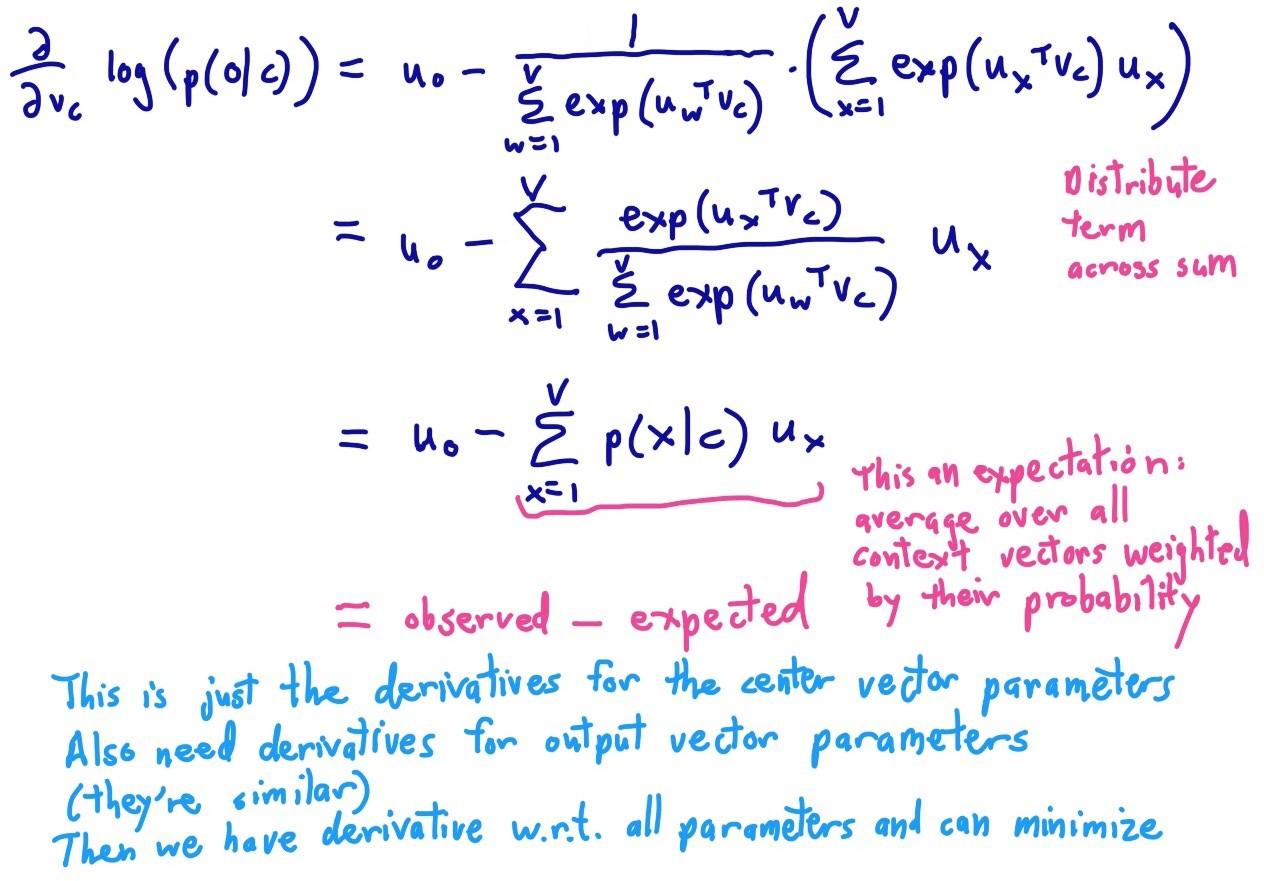 ∂/∂v_c log(p(o|c)) = u_o - 1/(∑_{w=1}^{V} exp(u_w^T v_c)) · (∑_{x=1}^{V} exp(u_x^T v_c) u_x)
Distribute
term
across sum
= u_o - ∑_{x=1}^{V} exp(u_x^T v_c)/(∑_{w=1}^{V} exp(u_w^T v_c)) u_x
= u_o - ∑_{x=1}^{V} p(x|c) u_x
This an expectation:
average over all
context vectors weighted
by their probability
= observed - expected
This is just the derivatives for the center vector parameters
Also need derivatives for output vector parameters
(they're similar)
Then we have derivative w.r.t. all parameters and can minimize